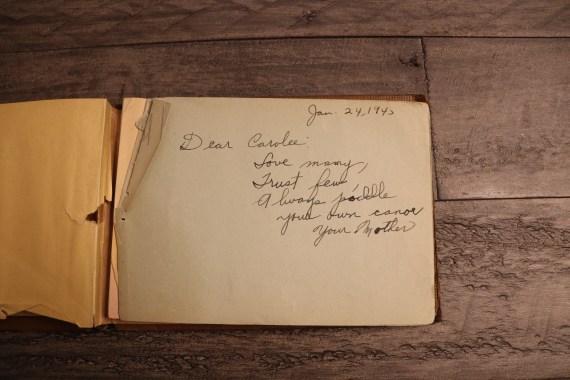 Jan. 24, 1945
Dear Carolee:
Love many,
Trust few
Always paddle
your own canoe
Your Mother